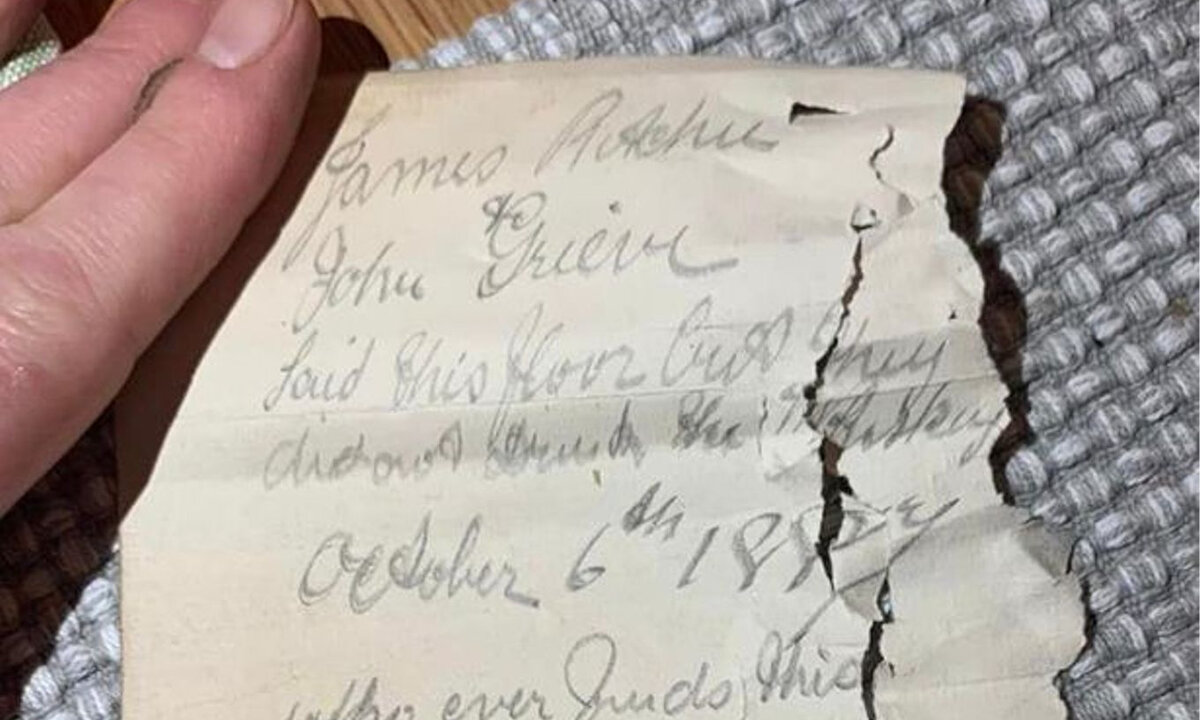 James Ritchie
& John Grieve
laid this floor but they
did not drink the Whisky
October 6th 1887
who ever finds this